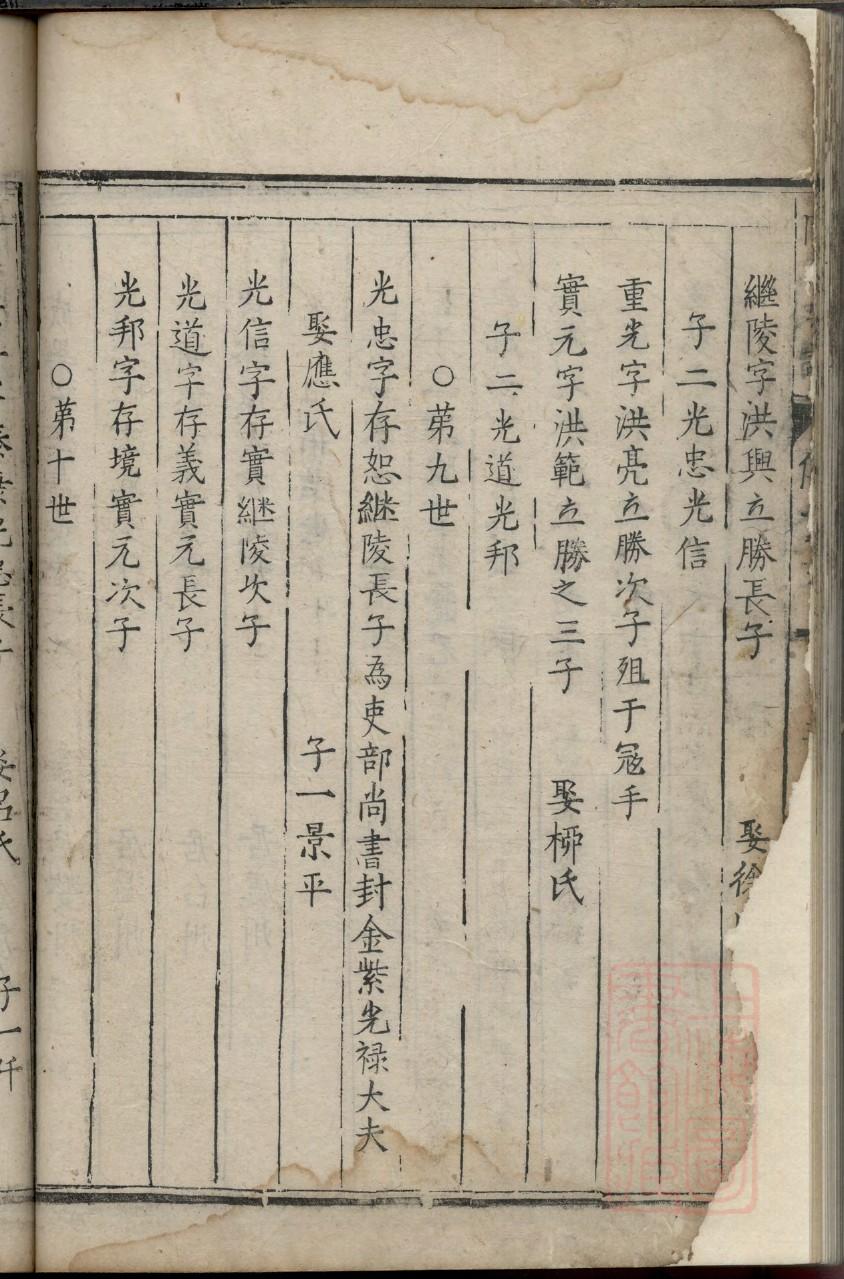 繼陵字洪興立勝長子　娶徐
子二光忠光信
重光字洪亮立勝次子殂于冦手
實元字洪範立勝之三子　娶栁氏
子二光道光邦
○苐九世
光忠字存恕繼陵長子為吏部尚書封金紫光祿大夫
娶應氏　子一景平
光信字存實繼陵次子
光道字存義實元長子
光邦字存境實元次子
○苐十世